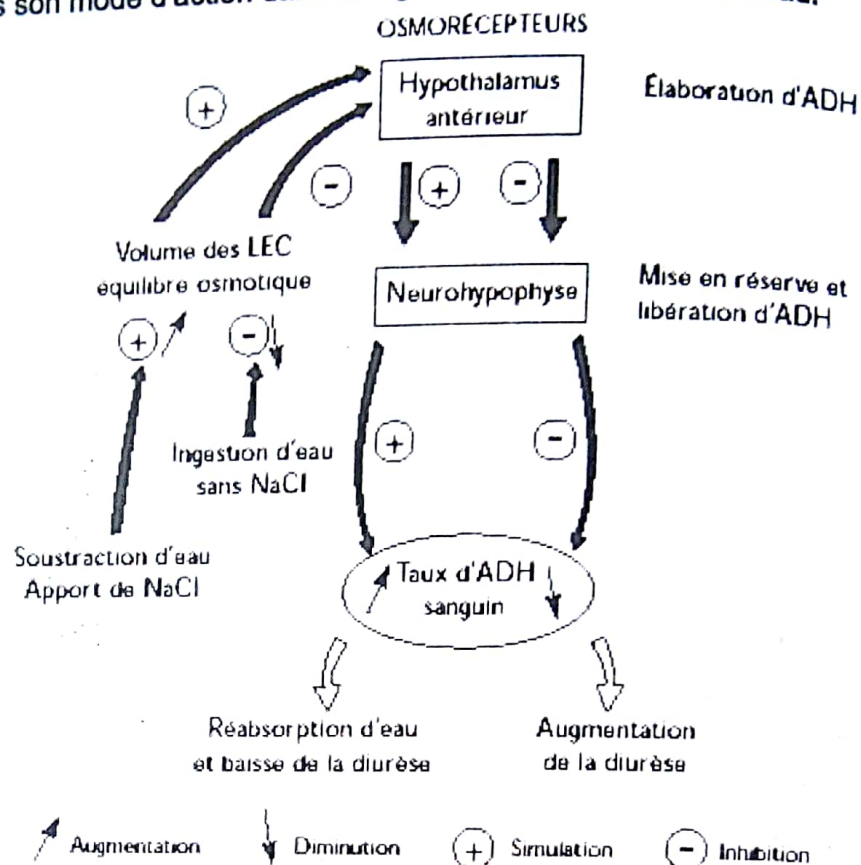 son mode d'action
OSMORÉCEPTEURS
Hypothalamus
antérieur
Élaboration d'ADH
+
-
+
-
Volume des LEC
équilibre osmotique
Neurohypophyse
Mise en réserve et
libération d'ADH
+
-
Ingestion d'eau
sans NaCl
+
-
Soustraction d'eau
Apport de NaCl
Taux d'ADH
sanguin
Réabsorption d'eau
et baisse de la diurèse
Augmentation
de la diurèse
Augmentation
Diminution
+ Simulation
- Inhibition